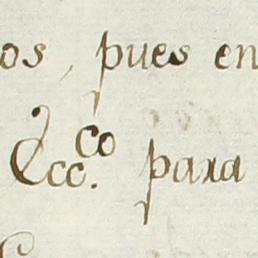 os, pues en
Ecc.co para